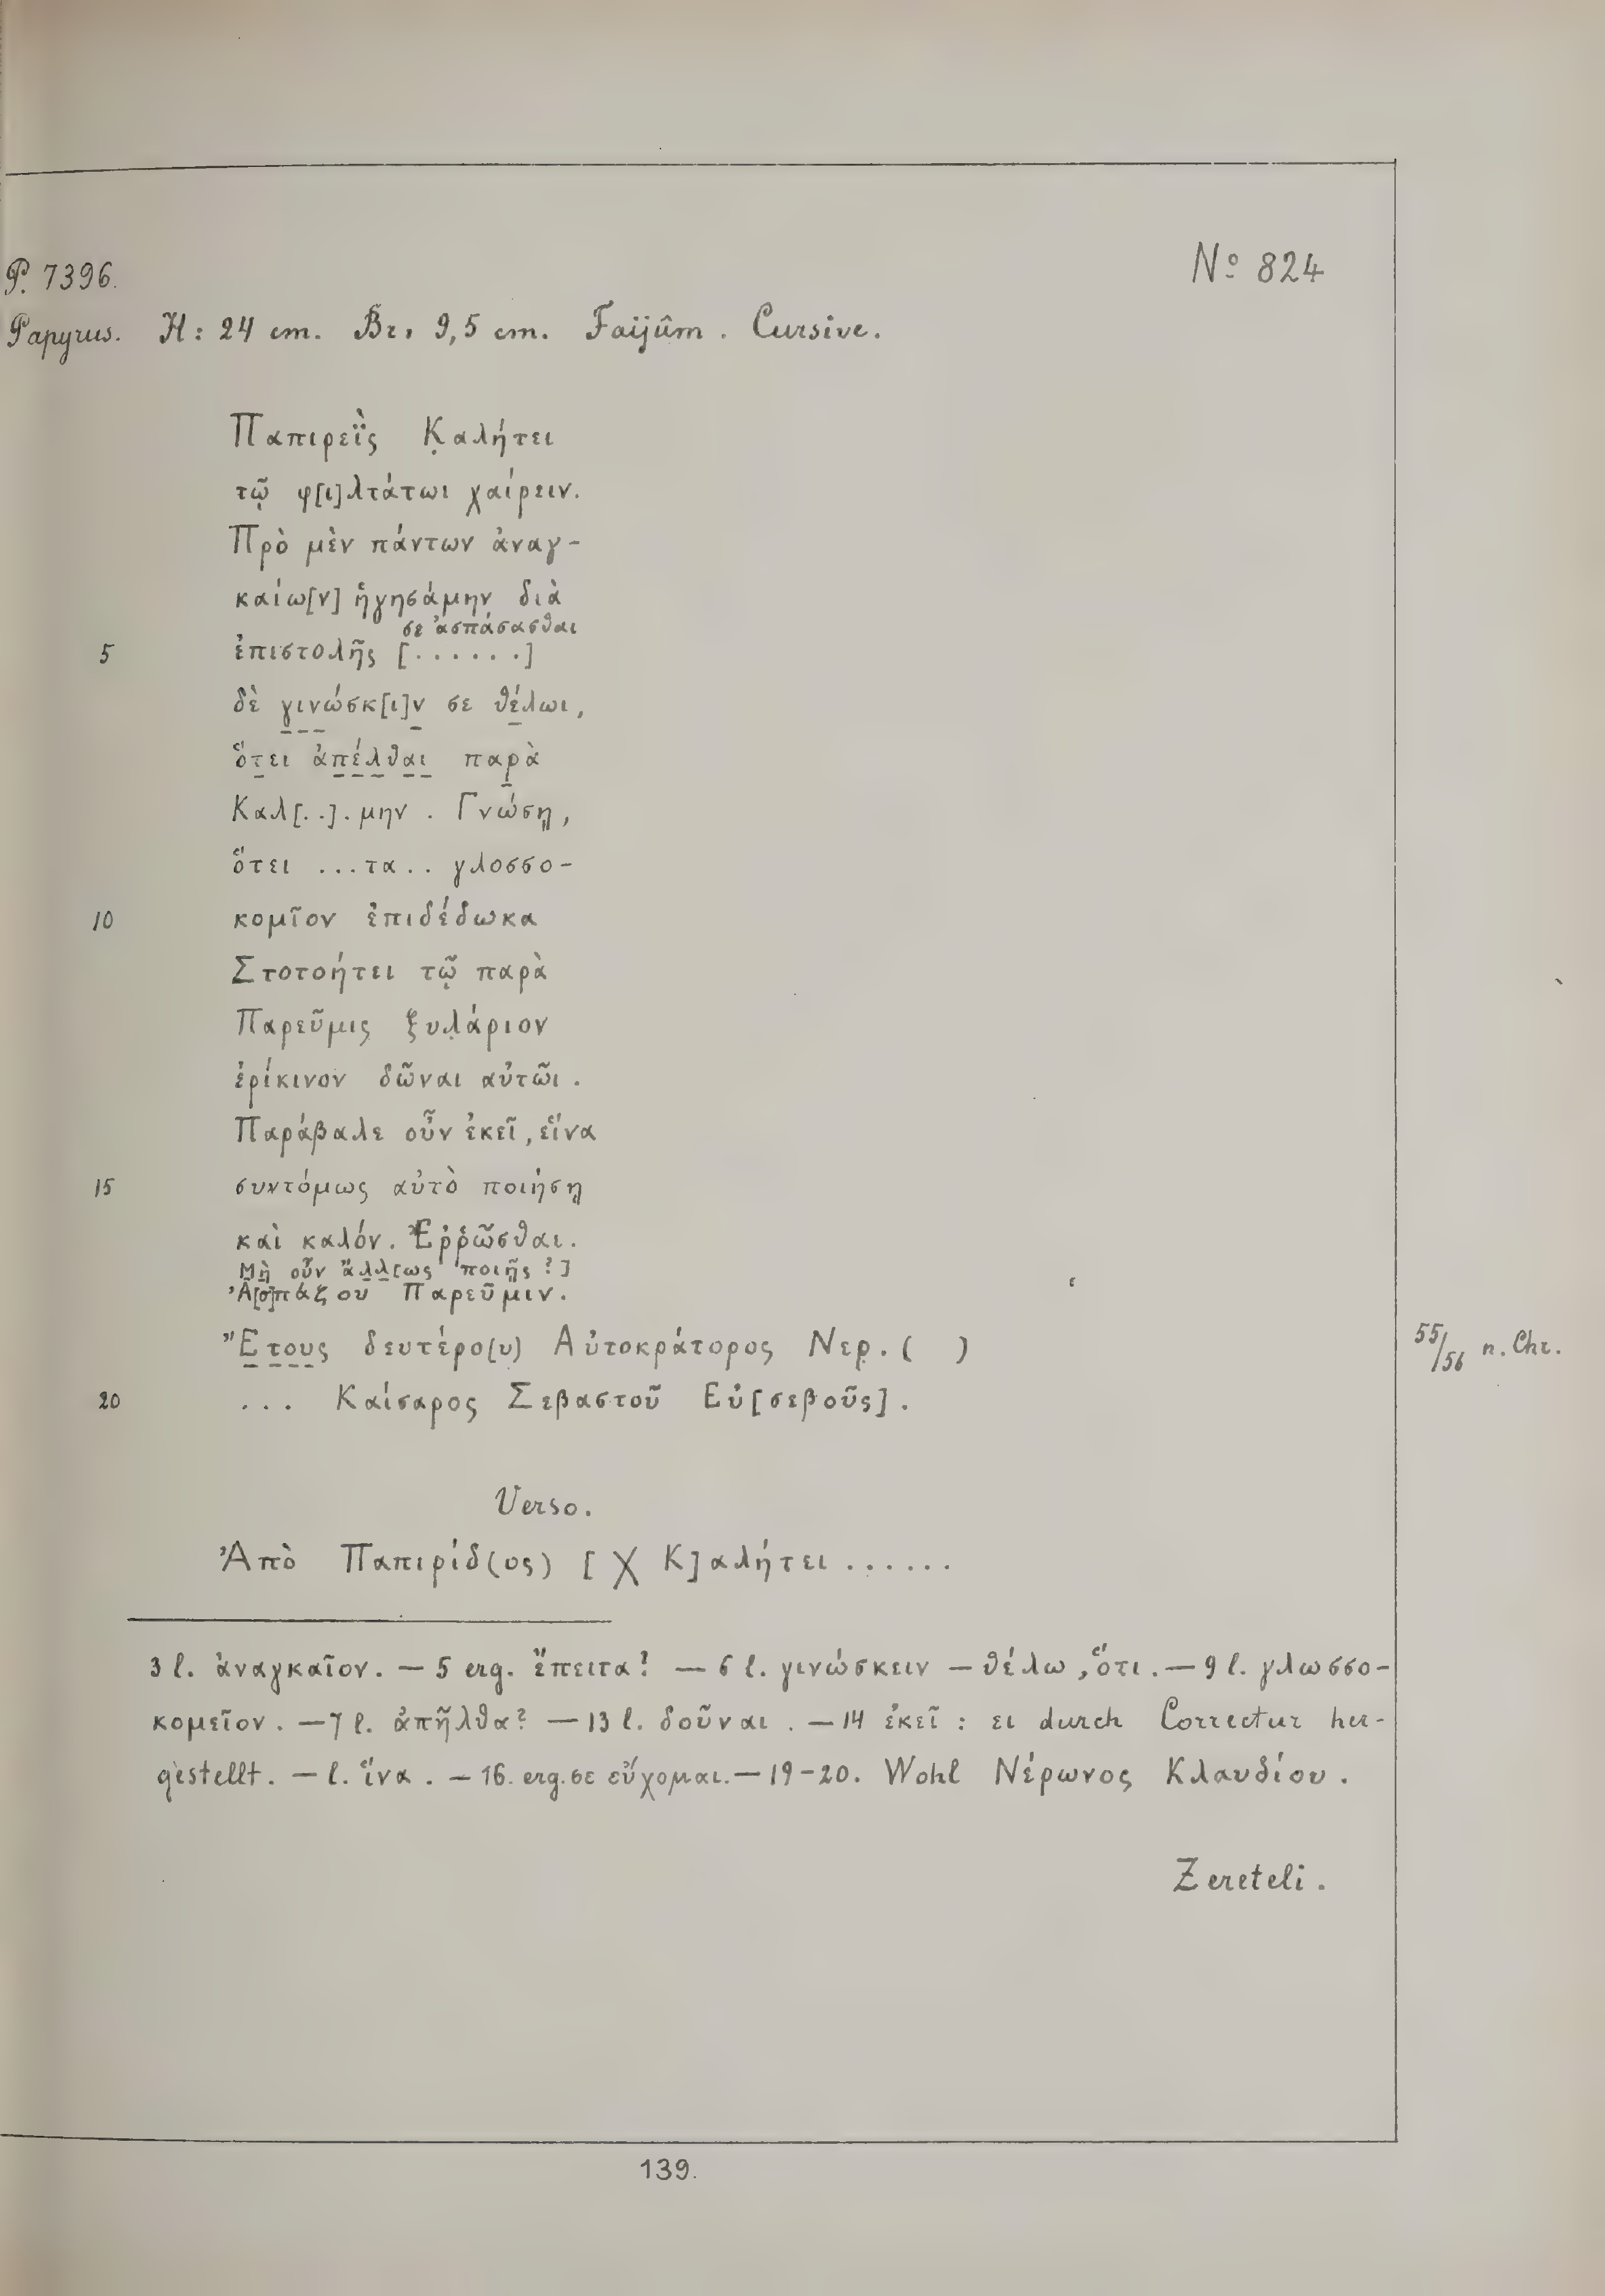 P. 7396.
Nº 824
Papyrus. H: 24 cm. Br. 9,5 cm. Faijûm. Cursive.
Παπιρεῒς Κ̣αλήτει
τῷ φ[ι]λτάτωι χαίρειν.
Πρὸ μὲν πάντων ἀναγ-
καίω[ν] ἡγησάμην διὰ
σε ἀσπάσασθαι
5 ἐπιστολῆς [......]
δὲ γ̲ι̲ν̲ώσκ[ι]ν̲ σε θέ̲λωι,
ὅτ̲ει ἀπ̲έ̲λ̲θα̲ι̲ παρ̲ὰ
Καλ[..].μην. Γνώσῃ,
ὅτει ...τα.. γλοσσο-
10 κομῖον ἐπιδέδωκα
Στοτοήτει τῷ παρὰ
Παρεῦμις ξυλ̣άριον
ἐρίκινον δῶναι αὐτῶι.
Παράβαλε οὖν ἐκεῖ, εἵνα
15 συντόμως αὐτὸ ποιήσῃ
καὶ καλόν. Ἐρῤῶσθαι.
Μὴ οὖν ἄλ̲λ̲[ως ποιῇς?]
Ἀ[σ]πάζου Παρεῦμιν.
Ἔ̲τ̲ο̲υ̲ς δευτέρο(υ) Αὐτοκράτορος Νερ̣.( )
55/56 n. Chr.
20 ... Καίσαρος Σεβαστοῦ Εὐ[σεβοῦς].
Verso.
Ἀπὸ Παπιρίδ(ος) [ Χ Κ]αλήτει ......
3 l. ἀναγκαῖον. — 5 erg. ἔπειτα? — 6 l. γινώσκειν — θέλω, ὅτι. — 9 l. γλωσσο-
κομεῖον. — 7 l. ἀπῆλθα? — 13 l. δοῦναι. — 14 ἐκεῖ: ει durch Correctur her-
gestellt. — l. ἵνα. — 16. erg. σε εὔχομαι. — 19-20. Wohl Νέρωνος Κλαυδίου.
Zereteli.
139.